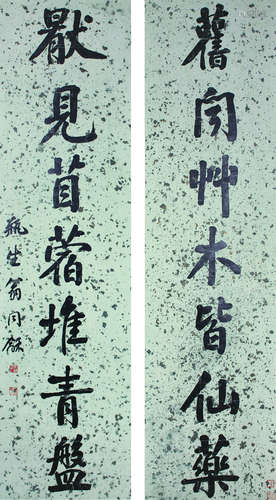 舊聞艸木皆仙藥
猒見苜蓿堆青盤
瓶生翁同龢